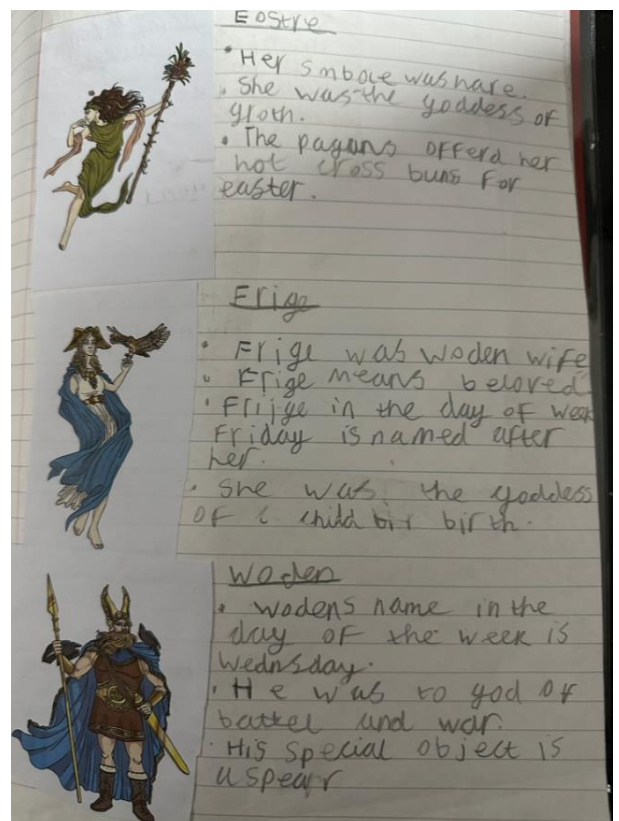 Eostre
• Her smbole was hare.
• She was the goddess of
groth.
• The pagans offerd her
hot cross buns for
easter.
Frige
• Frige was woden wife
• Frige means beloved
• Frijge in the day of week
Friday is named after
her.
• She was the goddess
of c child bir birth.
Woden
• wodens name in the
day of the week is
Wednsday.
• He was to god of
battel and war.
• His special object is
a spear